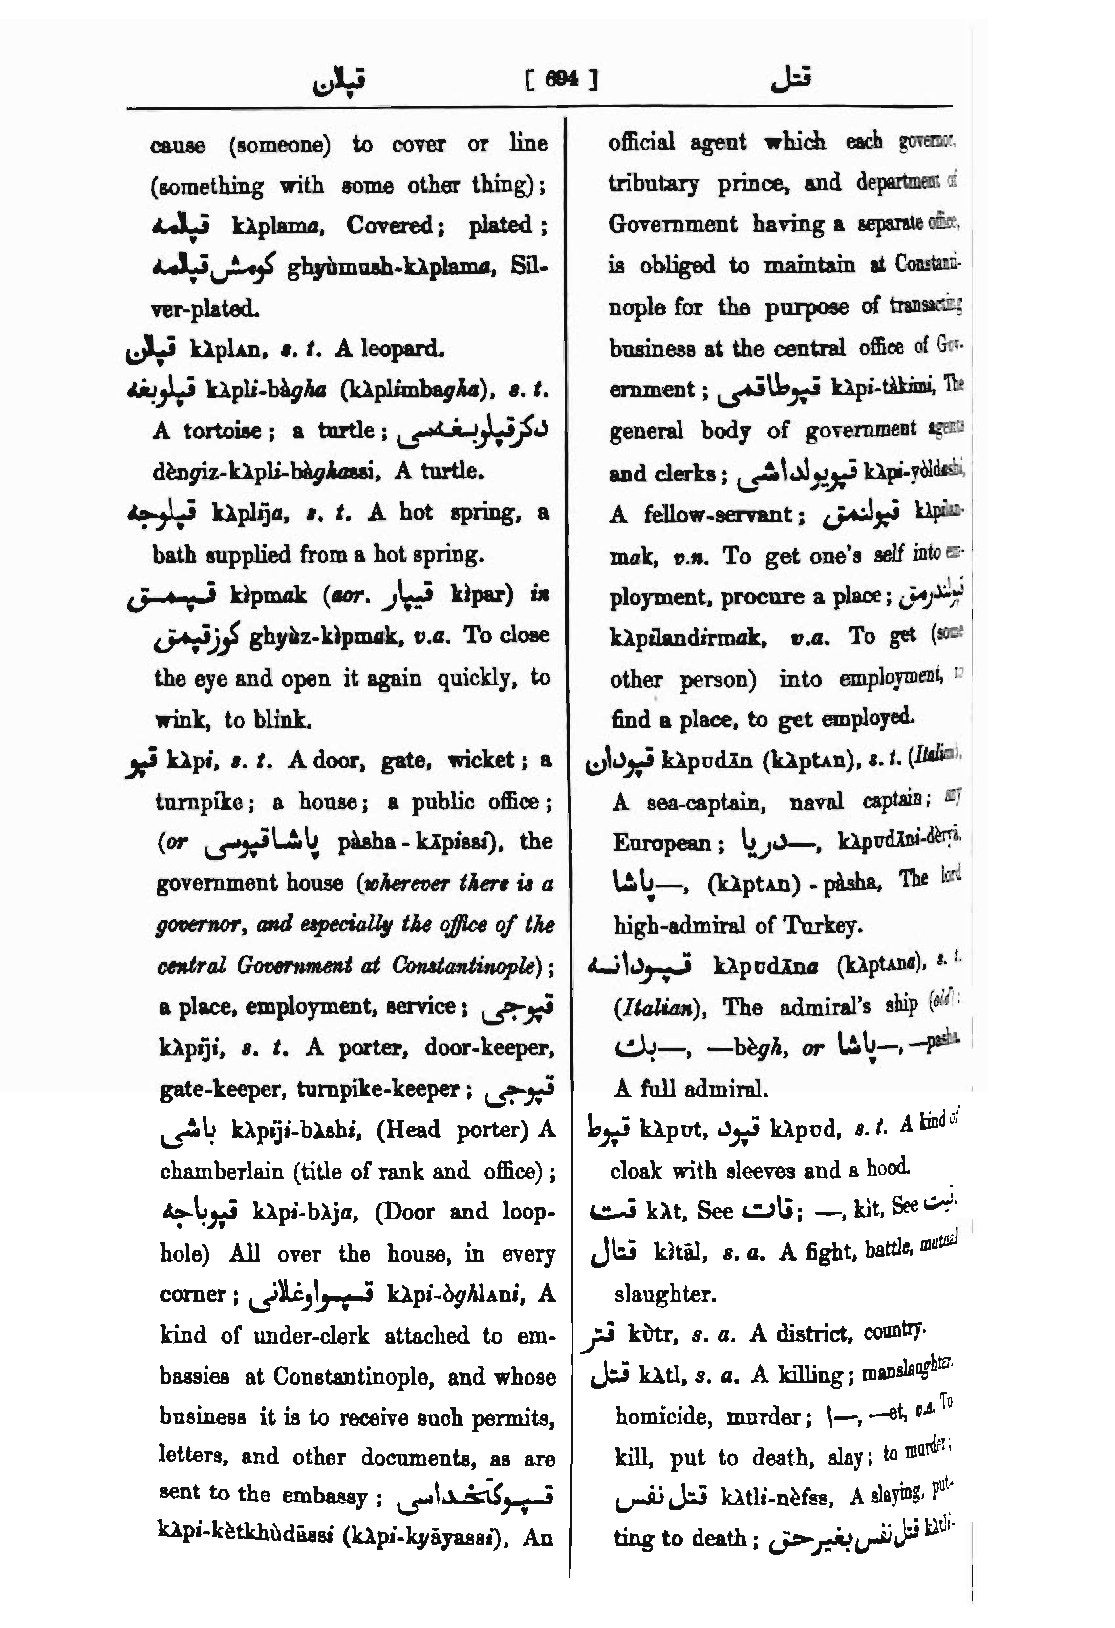 قپلان [ 694 ] قتل
cause (someone) to cover or line
(something with some other thing);
قپلمه kλplama, Covered; plated;
كومش قپلمه ghyùmush-kλplama, Sil-
ver-plated.
قپلن kλplᴀn, s. t. A leopard.
قپلوبغه kλpli-bàgha (kλplímbagha), s. t.
A tortoise; a turtle; دكز قپلوبغه‌سی
dèngiz-kλpli-bàghassi, A turtle.
قپلوجه kλplija, s. t. A hot spring, a
bath supplied from a hot spring.
قپمق kìpmak (aor. قیپار kìpar) in
كوز قپمق ghyùz-kìpmak, v.a. To close
the eye and open it again quickly, to
wink, to blink.
قپو kλpi, s. t. A door, gate, wicket; a
turnpike; a house; a public office;
(or پاشا قپوسی pàsha-kλpissi), the
government house (wherever there is a
governor, and especially the office of the
central Government at Constantinople);
a place, employment, service; قپوجی
kλpiji, s. t. A porter, door-keeper,
gate-keeper, turnpike-keeper; قپوجی
باشی kλpiji-bλshi, (Head porter) A
chamberlain (title of rank and office);
قپوباجه kλpi-bλja, (Door and loop-
hole) All over the house, in every
corner; قپو اوغلانی kλpi-òghlᴀni, A
kind of under-clerk attached to em-
bassies at Constantinople, and whose
business it is to receive such permits,
letters, and other documents, as are
sent to the embassy; قپوكتخداسی
kλpi-kètkhùdāssi (kλpi-kyāyassi), An
official agent which each governor,
tributary prince, and department of
Government having a separate office,
is obliged to maintain at Constanti-
nople for the purpose of transacting
business at the central office of Gov-
ernment; قپوطاقمی kλpi-tàkimi, The
general body of government agents
and clerks; قپویولداشی kλpi-yòldashi,
A fellow-servant; قپولنمق kλpilan-
mak, v.n. To get one's self into em-
ployment, procure a place; قپولندرمق
kλpilandirmak, v.a. To get (some
other person) into employment, to
find a place, to get employed.
قپودان kλpᴜdān (kλptᴀn), s. t. (Italian),
A sea-captain, naval captain; any
European; —دریا, kλpᴜdāni-dèryā,
—پاشا, (kλptᴀn)-pàsha, The lord
high-admiral of Turkey.
قپودانه kλpᴜdāna (kλptᴀna), s. t.
(Italian), The admiral's ship (old);
—بك, —bègh, or —پاشا, —pasha,
A full admiral.
قپوط kλpᴜt, قپود kλpᴜd, s. t. A kind of
cloak with sleeves and a hood.
قت kλt, See قات; —, kìt, See
قتال kìtāl, s. a. A fight, battle, mutual
slaughter.
قتر kùtr, s. a. A district, country.
قتل kλtl, s. a. A killing; manslaughter,
homicide, murder; —ا, —et, v.a. To
kill, put to death, slay; to murder;
قتل نفس kλtli-nèfss, A slaying, put-
ting to death; قتل نفس بغیر حق kλtli-